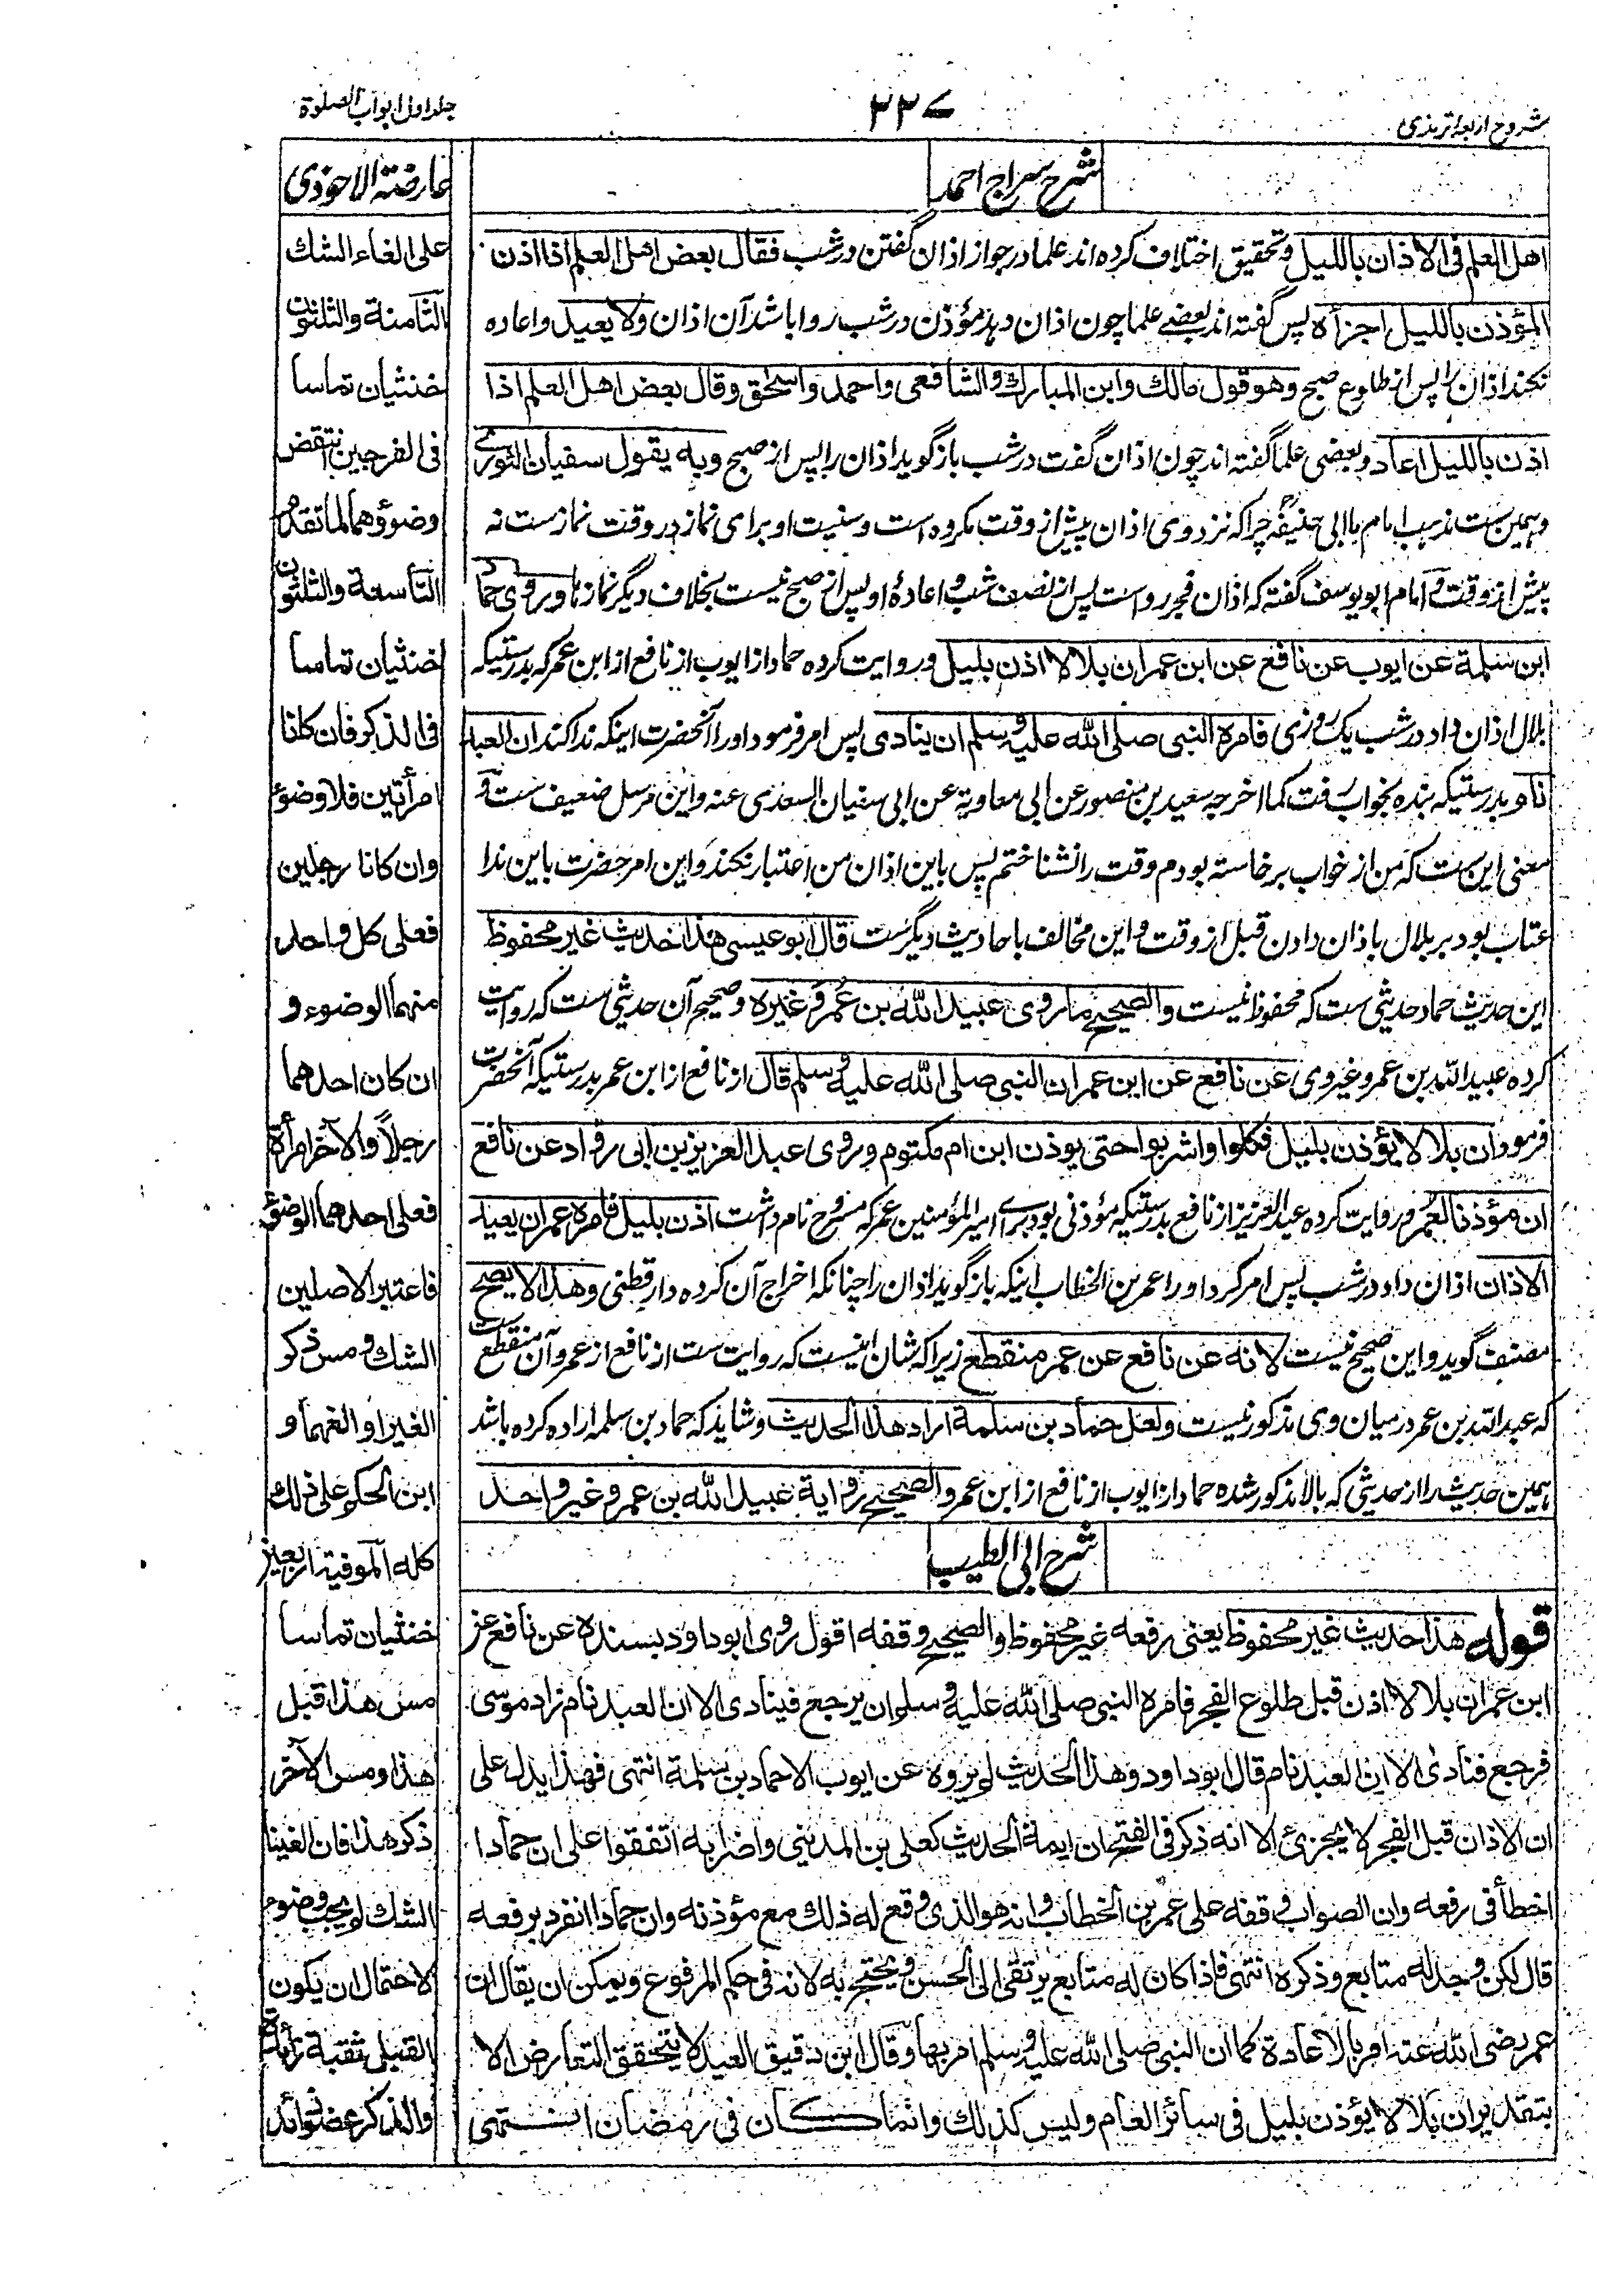 شروح اربعہ ترمذی
۲۳۷
جلد اول ابواب الصلوة
شرح سراج احمد
اهل العلم فی الاذان باللیل وتحقیق اختلاف کرده اند علما در جواز اذان گفتن در شب فقال بعض اهل العلم اذا اذن
المؤذن باللیل اجزأه پس گفته اند بعضے علما چون اذان دہد مؤذن در شب روا باشد آن اذان ولا یعید و اعاده
نکند اذان را پس از طلوع صبح وهو قول مالك وابن المبارك والشافعی واحمد واسحق وقال بعض اهل العلم اذا
اذن باللیل اعاد و بعضی علما گفته اند چون اذان گفت در شب باز گوید اذان را پس از صبح وبه یقول سفیان الثوری
وہمین ست مذہب امام ما ابی حنیفہ چرا کہ نزد وی اذان پیش از وقت مکروه است و سنیت او برای نماز در وقت نماز ست نہ
پیش از وقت و امام ابو یوسف گفته که اذان فجر رواست پس از نصف شب و اعادۂ او پس از صبح نیست بخلاف دیگر نمازها وروی حماد
ابن سلمة عن ایوب عن نافع عن ابن عمر ان بلالا اذن بلیل و روایت کرده حماد از ایوب از نافع از ابن عمر که بدرستیکه
بلال اذان داد در شب یک روزی فامره النبی صلی الله علیه وسلم ان ینادی پس امر فرمود او را آنحضرت اینکه ندا کند ان العبد
نام بدرستیکه بنده بخواب رفت کما اخرجه سعید بن منصور عن ابی معاویة عن ابی سفیان السعدی عنه واین مرسل ضعیف ست و
معنی این ست که من از خواب برخاسته بودم وقت را نشناختم پس باین اذان من اعتبار نکند و این امر حضرت باین ندا
عتاب بود بر بلال باذان دادن قبل از وقت و این مخالف باحادیث دیگرست قال ابو عیسی هذا حدیث غیر محفوظ
این حدیث حماد حدیثی ست که محفوظ نیست والصحیح ما روی عبید الله بن عمر وغیره وصحیح آن حدیثی ست که روایت
کرده عبید الله بن عمر و غیر وی عن نافع عن ابن عمر ان النبی صلی الله علیه وسلم قال از نافع از ابن عمر بدرستیکه آنحضرت
فرمود ان بلالا یؤذن بلیل فکلوا واشربوا حتی یوذن ابن ام مکتوم وروی عبد العزیز بن ابی رواد عن نافع
ان مؤذنا لعمر و روایت کرده عبد العزیز از نافع بدرستیکه مؤذنی بود برای امیر المؤمنین عمر که مسروح نام داشت اذن بلیل فامره عمر ان یعید
الاذان اذان داد در شب پس امر کرد او را عمر بن الخطاب اینکه باز گوید اذان را چنانکه اخراج آن کرده دارقطنی وهذا لا یصح
مصنف گوید و این صحیح نیست لانه عن نافع عن عمر منقطع زیرا که شان اینست که روایت ست از نافع از عمر و آن منقطع ست
که عبد الله بن عمر درمیان وی مذکور نیست ولعل حماد بن سلمة اراد هذا الحدیث و شاید که حماد بن سلمه اراده کرده باشد
ہمین حدیث را از حدیثی که بالا مذکور شده حماد از ایوب از نافع از ابن عمر والصحیح روایة عبید الله بن عمر وغیر واحد
شرح ابی الطیب
قوله هذا حدیث غیر محفوظ یعنی رفعه غیر محفوظ والصحیح وقفه اقول روی ابو داود بسنده عن نافع عن
ابن عمر ان بلالا اذن قبل طلوع الفجر فامره النبی صلی الله علیه وسلم ان یرجع فینادی الا ان العبد نام زاد موسی
فرجع فنادی الا ان العبد نام قال ابو داود وهذا الحدیث لم یروه عن ایوب الا حماد بن سلمة انتهی فهذا یدل علی
ان الاذان قبل الفجر لا یجزئ الا انه ذکر فی الفتح ان ایمة الحدیث کعلی بن المدینی واضرابه اتفقوا علی ان حمادا
اخطأ فی رفعه وان الصواب وقفه علی عمر بن الخطاب وانه هو الذی وقع له ذلك مع مؤذنه وان حمادا انفرد برفعه
قال لکن وجد له متابع وذکره انتهی فاذا کان له متابع یرتقی الی الحسن ویحتج به لانه فی حکم المرفوع ویمکن ان یقال ان
عمر رضی الله عنه امر بالاعادة کما ان النبی صلی الله علیه وسلم امر بها وقال ابن دقیق العید لا یتحقق التعارض الا
بتقدیر ان بلالا یؤذن بلیل فی سائر العام ولیس کذلك وانما کان فی رمضان انتهی
عارضة الاحوذی
علی الغاء الشك
الثامنة والثلثون
خنثیان تماسا
فی الفرجین انتقض
وضوؤهما لما تقدم
التاسعة والثلثون
خنثیان تماسا
فی الذکر فان کانا
امرأتین فلا وضوء
وان کانا رجلین
فعلی کل واحد
منهما الوضوء و
ان کان احدهما
رجلاً والآخر امرأة
فعلی احدهما الوضوء
فاعتبر الاصلین
الشك ومس ذکر
الغیر او الغهما و
ابن الحکم علی ذلك
کله الموفیة اربعین
خنثیان تماسا
مس هذا قبل
هذا ومس الآخر
ذکر هذا فان الغینا
الشك لم یجب وضوء
لاحتمال ان یکون
القبل ثقبة زائدة
والذکر عضو زائد